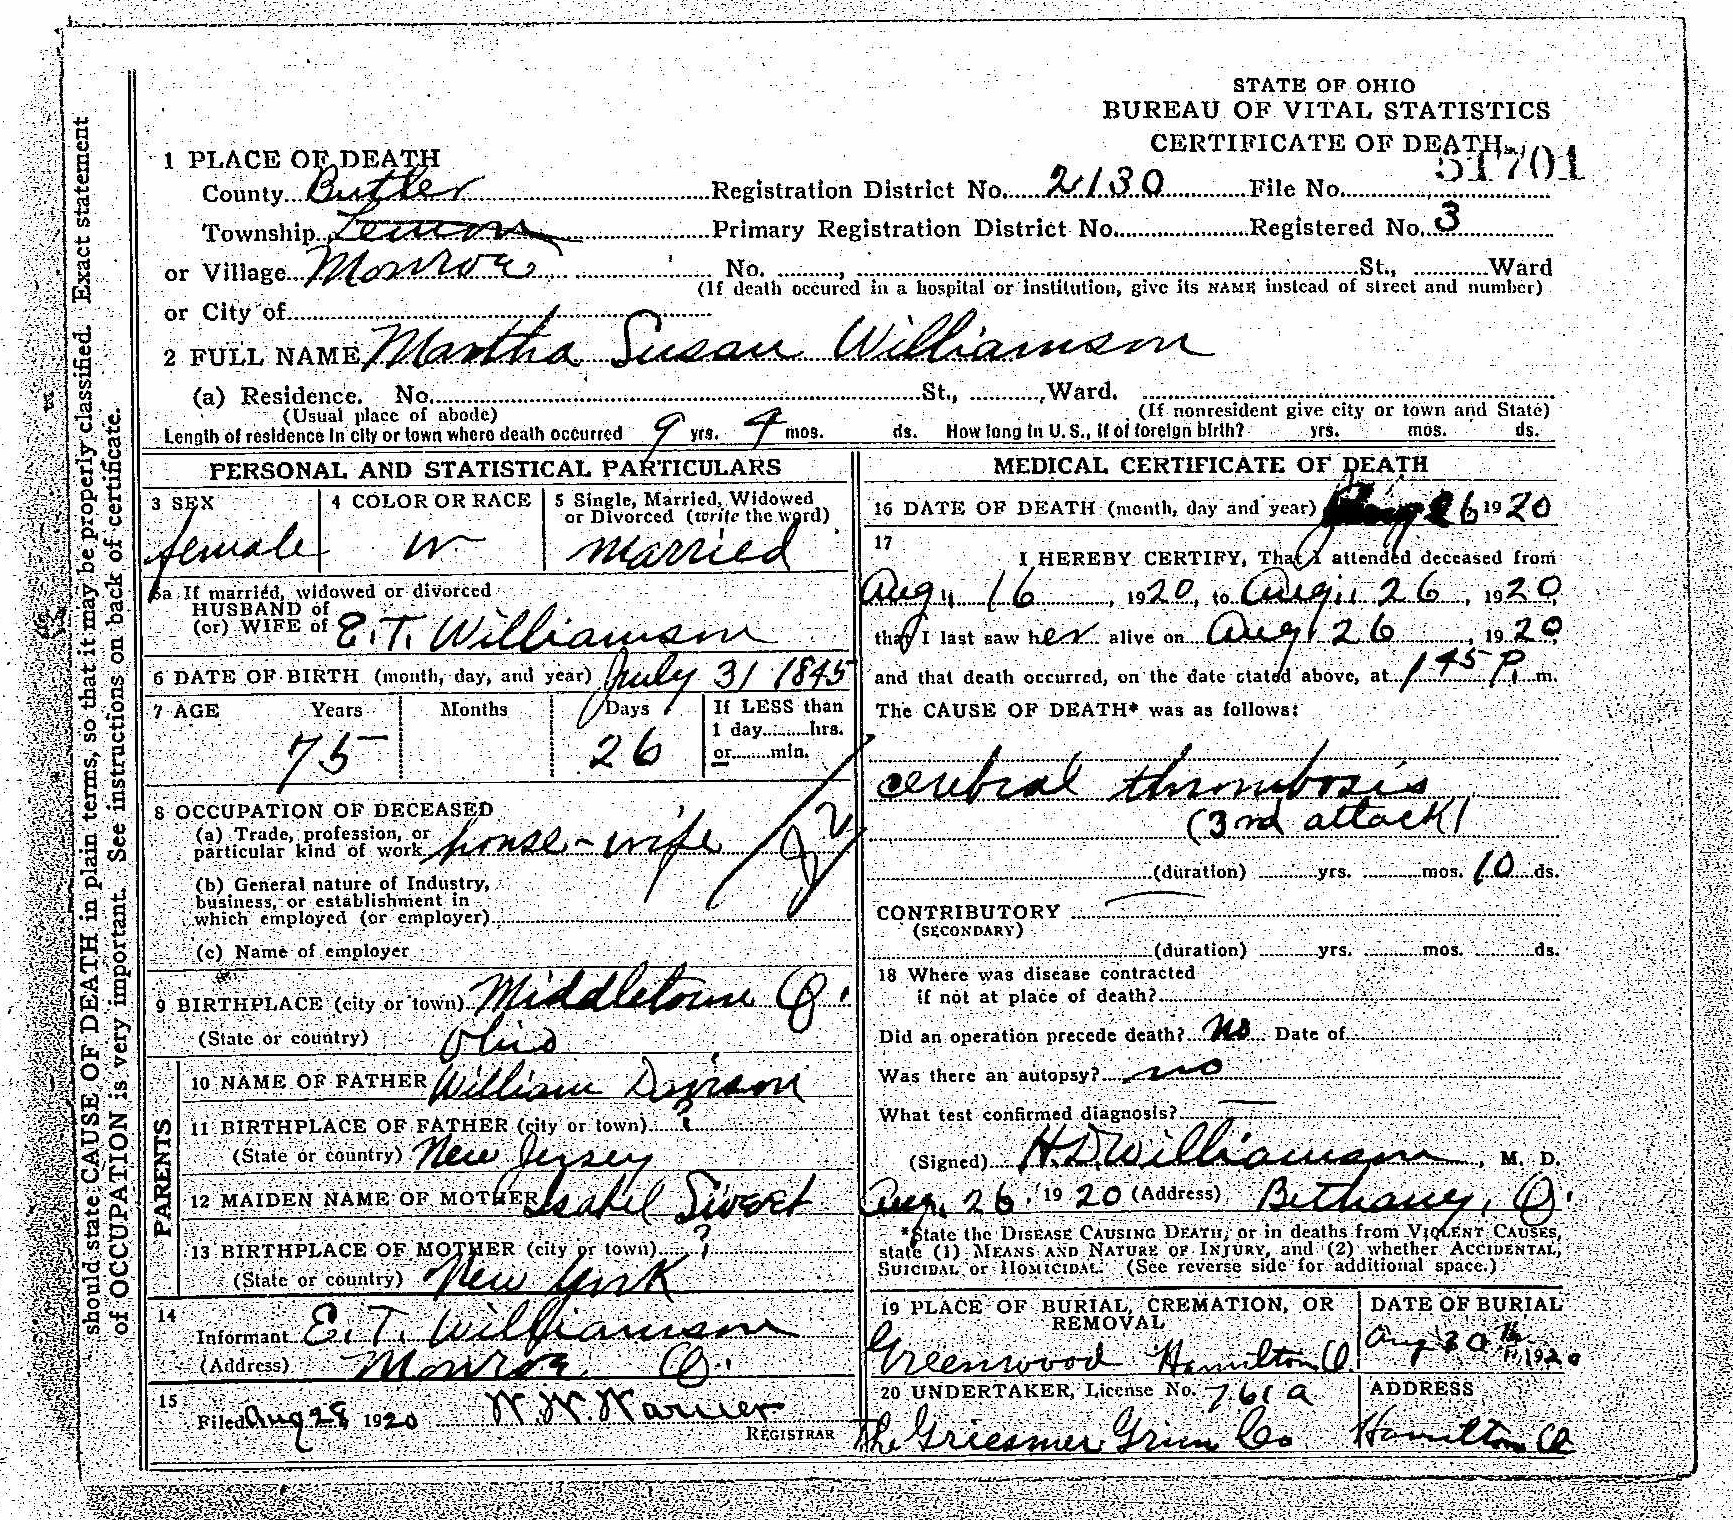 STATE OF OHIO
BUREAU OF VITAL STATISTICS
CERTIFICATE OF DEATH
1 PLACE OF DEATH
51701
County Butler Registration District No. 2130 File No.
Township Lemon Primary Registration District No. Registered No. 3
or Village Monroe No. , St., Ward
(If death occured in a hospital or institution, give its NAME instead of street and number)
or City of
2 FULL NAME Martha Susan Williamson
(a) Residence. No. St., Ward.
(Usual place of abode) (If nonresident give city or town and State)
Length of residence in city or town where death occurred 9 yrs. 4 mos. ds. How long in U. S., if of foreign birth? yrs. mos. ds.
should state CAUSE OF DEATH in plain terms, so that it may be properly classified. Exact statement
of OCCUPATION is very important. See instructions on back of certificate.
PERSONAL AND STATISTICAL PARTICULARS
3 SEX
female
4 COLOR OR RACE
W
5 Single, Married, Widowed
or Divorced (write the word)
Married
5a If married, widowed or divorced
HUSBAND of
(or) WIFE of E. T. Williamson
6 DATE OF BIRTH (month, day, and year) July 31 1845
7 AGE Years Months Days If LESS than
1 day hrs.
or min.
75 26
8 OCCUPATION OF DECEASED
(a) Trade, profession, or
particular kind of work house-wife
(b) General nature of Industry,
business, or establishment in
which employed (or employer)
(c) Name of employer
9 BIRTHPLACE (city or town) Middletown O.
(State or country) Ohio
PARENTS
10 NAME OF FATHER William
11 BIRTHPLACE OF FATHER (city or town) ?
(State or country) New Jersey
12 MAIDEN NAME OF MOTHER Isabel
13 BIRTHPLACE OF MOTHER (city or town) ?
(State or country) New York
14
Informant E. T. Williamson
(Address) Monroe O.
15
Filed Aug 28 1920 W. W. Warner
REGISTRAR
MEDICAL CERTIFICATE OF DEATH
16 DATE OF DEATH (month, day and year) Aug 26 1920
17
I HEREBY CERTIFY, That I attended deceased from
Aug. 16, 1920, to Aug. 26, 1920
that I last saw her alive on Aug. 26, 1920
and that death occurred, on the date stated above, at 1 45 P. m.
The CAUSE OF DEATH* was as follows:
cerebral thrombosis
(3rd attack)
(duration) yrs. mos. 10 ds.
CONTRIBUTORY
(SECONDARY)
(duration) yrs. mos. ds.
18 Where was disease contracted
if not at place of death?
Did an operation precede death? No Date of
Was there an autopsy? no
What test confirmed diagnosis? —
(Signed) H. D. Williamson, M. D.
Aug. 26, 1920 (Address) Bethany, O.
*State the DISEASE CAUSING DEATH, or in deaths from VIOLENT CAUSES,
state (1) MEANS AND NATURE OF INJURY, and (2) whether ACCIDENTAL,
SUICIDAL or HOMICIDAL. (See reverse side for additional space.)
19 PLACE OF BURIAL, CREMATION, OR
REMOVAL
Greenwood Hamilton O.
DATE OF BURIAL
Aug 30th 1920
20 UNDERTAKER, License No. 761 a
The Griesmer Grim Co.
ADDRESS
Hamilton O